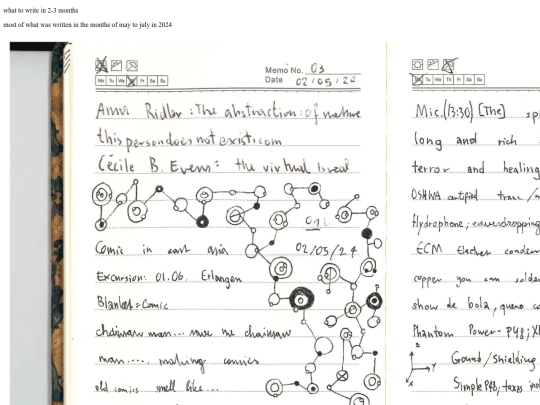 what to write in 2-3 months
most of what was written in the months of may to july in 2024
Memo No. 03
Mo Tu We Fr Sa Su
Date 02/05/24
Anna Ridler: The abstraction of nature
this person does not exist.com
Cécile B. Evens: the virtual is real
02/05/24
Comic in east asia
Excursion: 01.06. Erlangen
Blanket = Comic
chainsaw man... save me chainsaw
man.... making comics
old comics smell like...
Tu We Th Fr Sa Su
Mic. (13:30) [The]
long and rich
terror and healing
OSHWA certified
Hydrophone; eavesdropping
ECM
copper you can solder
show de bola, quero
Phantom Power - P48;
Ground/Shielding
Simple P48,